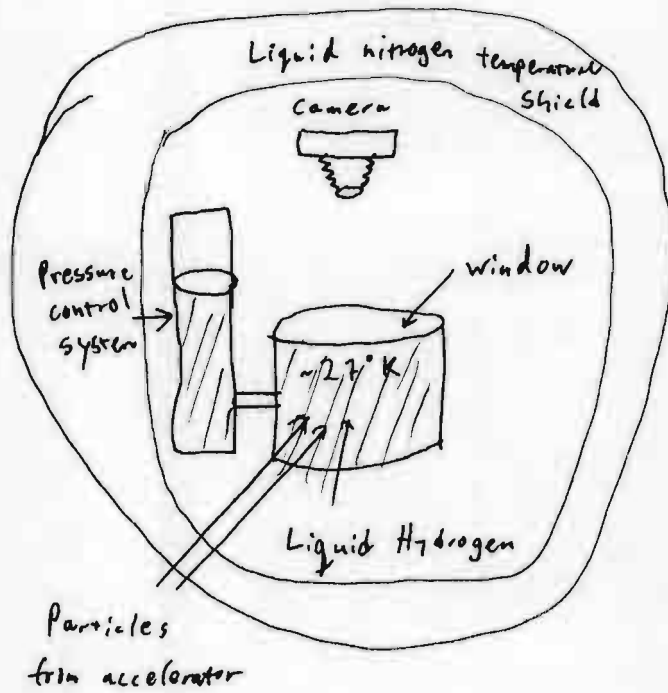 Liquid nitrogen temperature
shield
Camera
Pressure
control
system
window
~27°K
Liquid Hydrogen
Particles
from accelerator